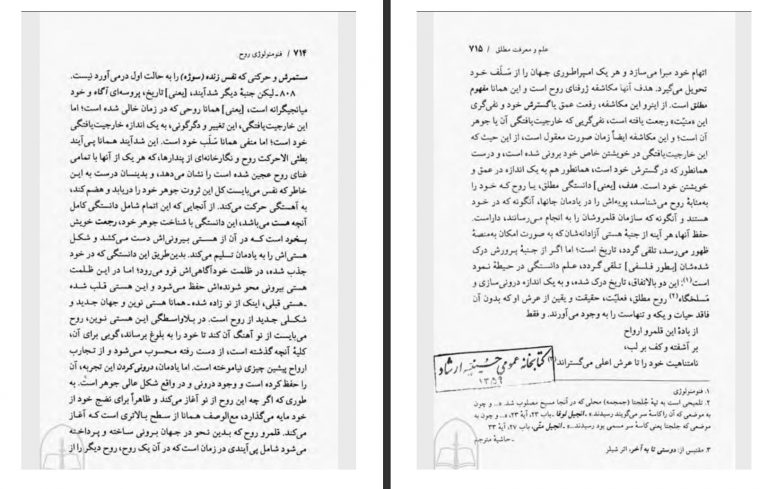 ۷۱۴ / فنومنولوژی روح
مستمرش و حرکتی که نفس زنده (سوژه) را به حالت اول درمی‌آورد نیست.
۸۰۸ـ لیکن جنبهٔ دیگر شدآیند، [یعنی] تاریخ، پروسه‌ای آگاه و خود
میانجیگرانه است، [یعنی] همانا روحی که در زمان خالی شده است؛ اما
این خارجیت‌یافتگی، این تغییر و دگرگونی، به یک اندازه خارجیت‌یافتگی
خود است؛ اما منفی همانا سَلب خود است. این شدآیند همانا پی‌آیند
بطئی‌الاحرکت روح و نگارخانه‌ای از پندارها، که هر یک از آنها با تمامی
غنای روح عجین شده است را نشان می‌دهد، و بدینسان درست به این
خاطر که نفس می‌بایست کل این ثروت جوهر خود را دریابد و هضم کند،
به آهستگی حرکت می‌کند. از آنجایی که این اتمام شامل دانستگی کامل
آنچه هست می‌باشد، این دانستگی با شناخت جوهر خود، رجعت خویش
بخود است که در آن از هستی بیرونی‌اش دست می‌کشد و شکل
هستی‌اش را به یادمان تسلیم می‌کند. بدین‌طریق این دانستگی که در خود
جذب شده، در ظلمت خودآگاهی‌اش فرو می‌رود؛ اما در این ظلمت
هستی بیرونی محو شونده‌اش حفظ می‌شود و این هستی قلب شده
ـ هستی قبلی، اینک از نو زاده شده ـ همانا هستی نوین و جهان جدید و
شکلی جدید از روح است. در بلاواسطگی این هستی نوین، روح
می‌بایست از نو آهنگ آن کند تا خود را به بلوغ برساند، گویی برای آن،
کلیهٔ آنچه گذشته است، از دست رفته محسوب می‌شود و از تجارب
ارواح پیشین چیزی نیاموخته است. اما یادمان، درونی‌کردن این تجربه، آن
را حفظ کرده است و وجود درونی و در واقع شکل عالی جوهر است. به
طوری که اگر چه این روح از نو آغاز می‌کند و ظاهراً برای نضج خود از
خود مایه می‌گذارد، مع‌الوصف همانا از سطح بالاتری است که آغاز
می‌کند. قلمرو روح که بدین نحو در جهان برونی ساخته و پرداخته
می‌شود شامل پی‌آیندی در زمان است که در آن یک روح، روح دیگر را از
علم و معرفت مطلق / ۷۱۵
اتهام خود مبرا می‌سازد و هر یک امپراطوری جهان را از سَلَف خود
تحویل می‌گیرد. هدف آنها مکاشفه ژرفای روح است و این همانا مفهوم
مطلق است. از اینرو این مکاشفه، رفعت عمق یا گسترش خود و نفی‌گری
این «منیّت» رجعت یافته است، نفی‌گریی که خارجیت‌یافتگی آن یا جوهر
آن است؛ و این مکاشفه ایضاً زمان صورت معقول است، از این حیث که
این خارجیت‌یافتگی در خویشتن خاص خود برونی شده است، و درست
همانطور که در گسترش خود است، همانطور هم به یک اندازه در عمق و
خویشتن خود است. هدف، [یعنی] دانستگی مطلق، یا روح که خود را
به‌مثابهٔ روح می‌شناسد، پویه‌اش را در یادمان جانها، آنگونه که در خود
هستند و آنگونه که سازمان قلمروشان را به انجام می‌رسانند، داراست.
حفظ آنها، هر آینه از جنبهٔ هستی آزادانه‌شان که به صورت امکان به‌منصهٔ
ظهور می‌رسد، تلقی گردد، تاریخ است؛ اما اگر از جنبهٔ پرورش درک
شده‌شان [بطور فلسفی] تلقی گردد، علم دانستگی در حیطهٔ نمود
است(۱)؛ این دو بالاتفاق، تاریخ درک شده، و به یک اندازه درونی‌سازی و
مَسلخگاه(۲) روح مطلق، فعلیّت، حقیقت و یقین از عرش او که بدون آن
فاقد حیات و یکه و تنهاست را به وجود می‌آورند. و فقط
از بادهٔ این قلمرو ارواح
بر آشفته و کف بر لب،
نامتناهیت خود را تا عرش اعلی می‌گستراند(۳)
کتابخانه عمومی حسینیه ارشاد
۱۳۵۹
۱. فنومنولوژی
۲. تلمیحی است به تپهٔ جُلجتا (جمجمه) محلی که در آنجا مسیح مصلوب شد. «... و چون
به موضعی که آن را کاسهٔ سر می‌گویند رسیدند.» ـ انجیل لوقا ـ باب ۲۳، آیهٔ ۳۳. «... و چون به
موضعی که جلجتا یعنی کاسهٔ سر مسمی بود رسیدند.» ـ انجیل متّی، باب ۲۷، آیهٔ ۳۳
ـ حاشیهٔ مترجم
۳. مقتبس از: دوستی تا به آخر، اثر شیلر